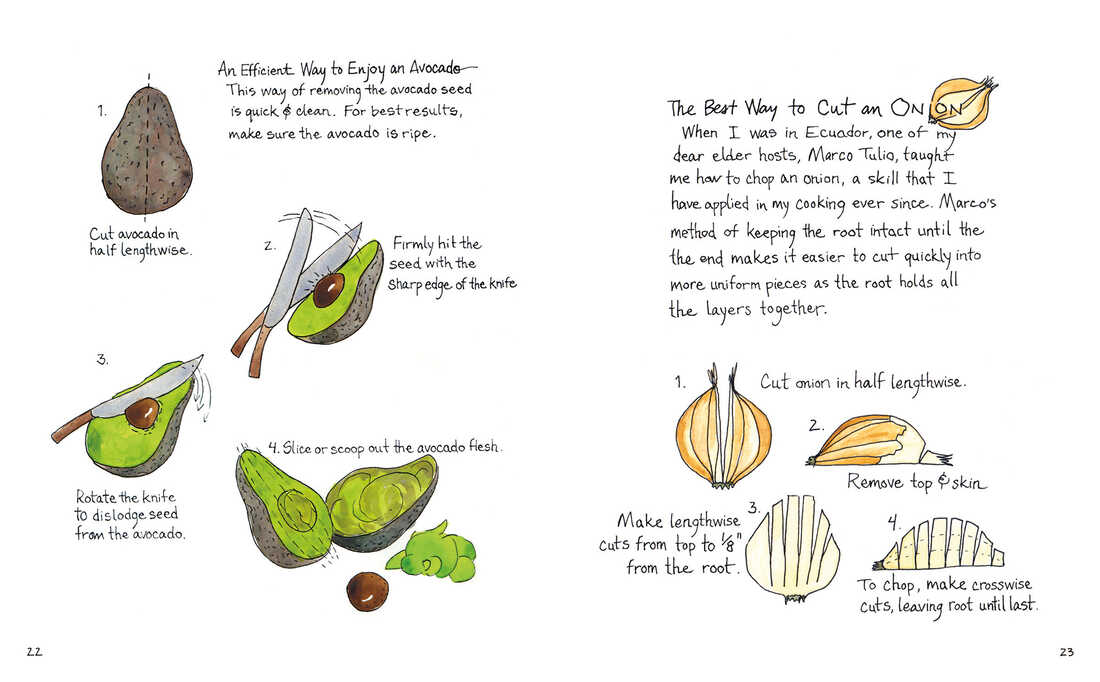 An Efficient Way to Enjoy an Avocado
This way of removing the avocado seed
is quick & clean. For best results,
make sure the avocado is ripe.
1.
Cut avocado in
half lengthwise.
2.
Firmly hit the
seed with the
sharp edge of the knife
3.
Rotate the knife
to dislodge seed
from the avocado.
4. Slice or scoop out the avocado flesh.
22
The Best Way to Cut an ONION
When I was in Ecuador, one of my
dear elder hosts, Marco Tulio, taught
me how to chop an onion, a skill that I
have applied in my cooking ever since. Marco's
method of keeping the root intact until the
the end makes it easier to cut quickly into
more uniform pieces as the root holds all
the layers together.
1. Cut onion in half lengthwise.
2.
Remove top & skin
3.
Make lengthwise
cuts from top to 1/8"
from the root.
4.
To chop, make crosswise
cuts, leaving root until last.
23